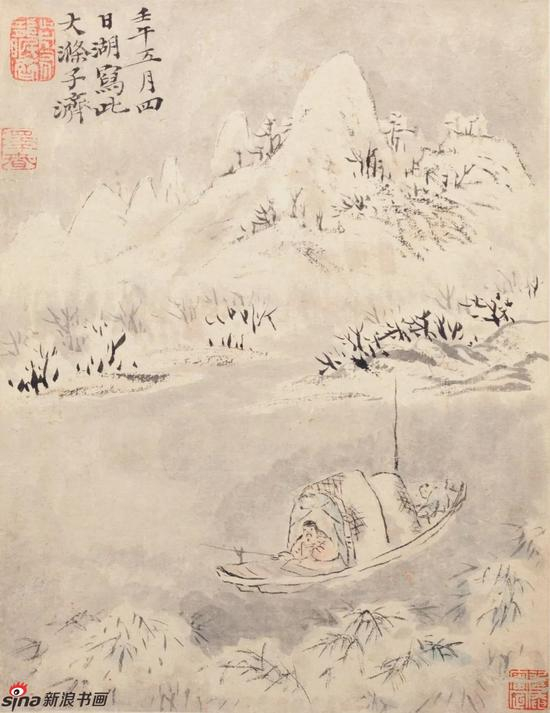 壬午五月四
日湖寫此
大滌子濟
sina新浪书画